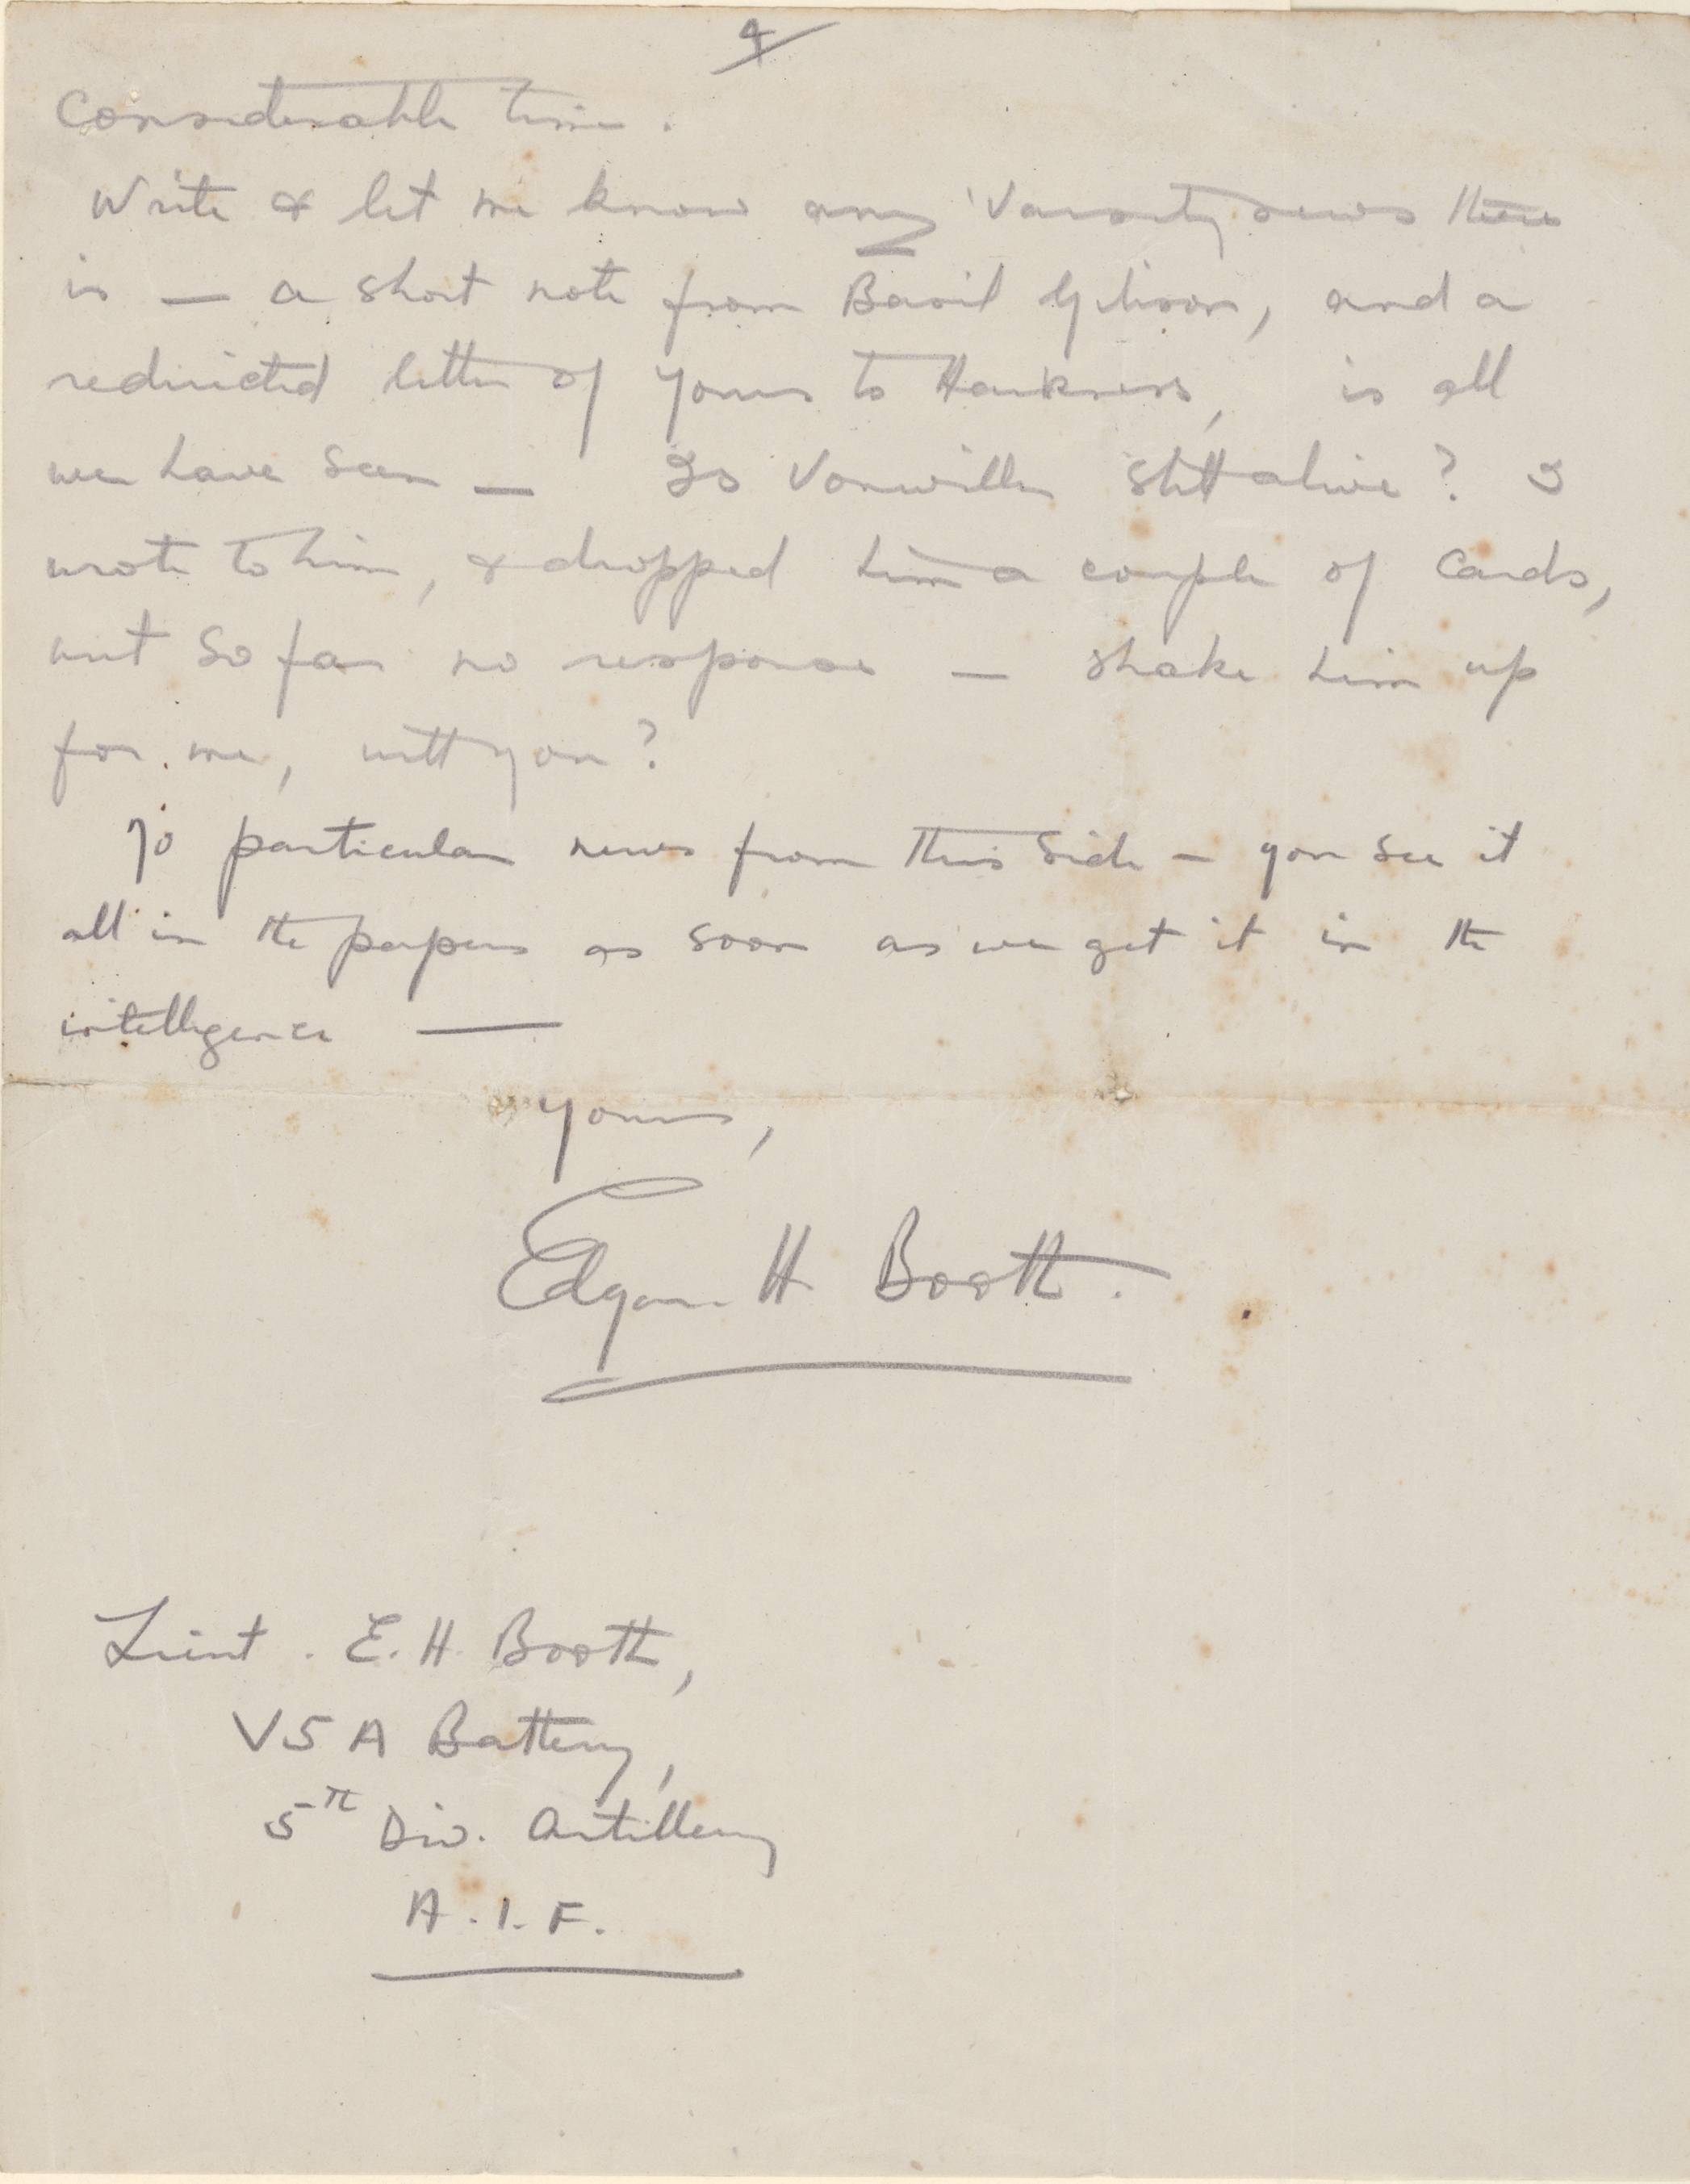 4
Considerable time.
Write & let me know any 'Varsity news there
is — a short note from Basil Gibson, and a
redirected letter of yours to Harkness, is all
we have seen — Is Vonwiller still alive? I
wrote to him, & dropped him a couple of cards,
but so far no response — shake him up
for me, will you?
No particular news from this side — you see it
all in the papers as soon as we get it in the
intelligence —
Yours,
Edgar H Booth.
Lieut. E. H. Booth,
V5A Battery,
5th Div. Artillery
A.I.F.